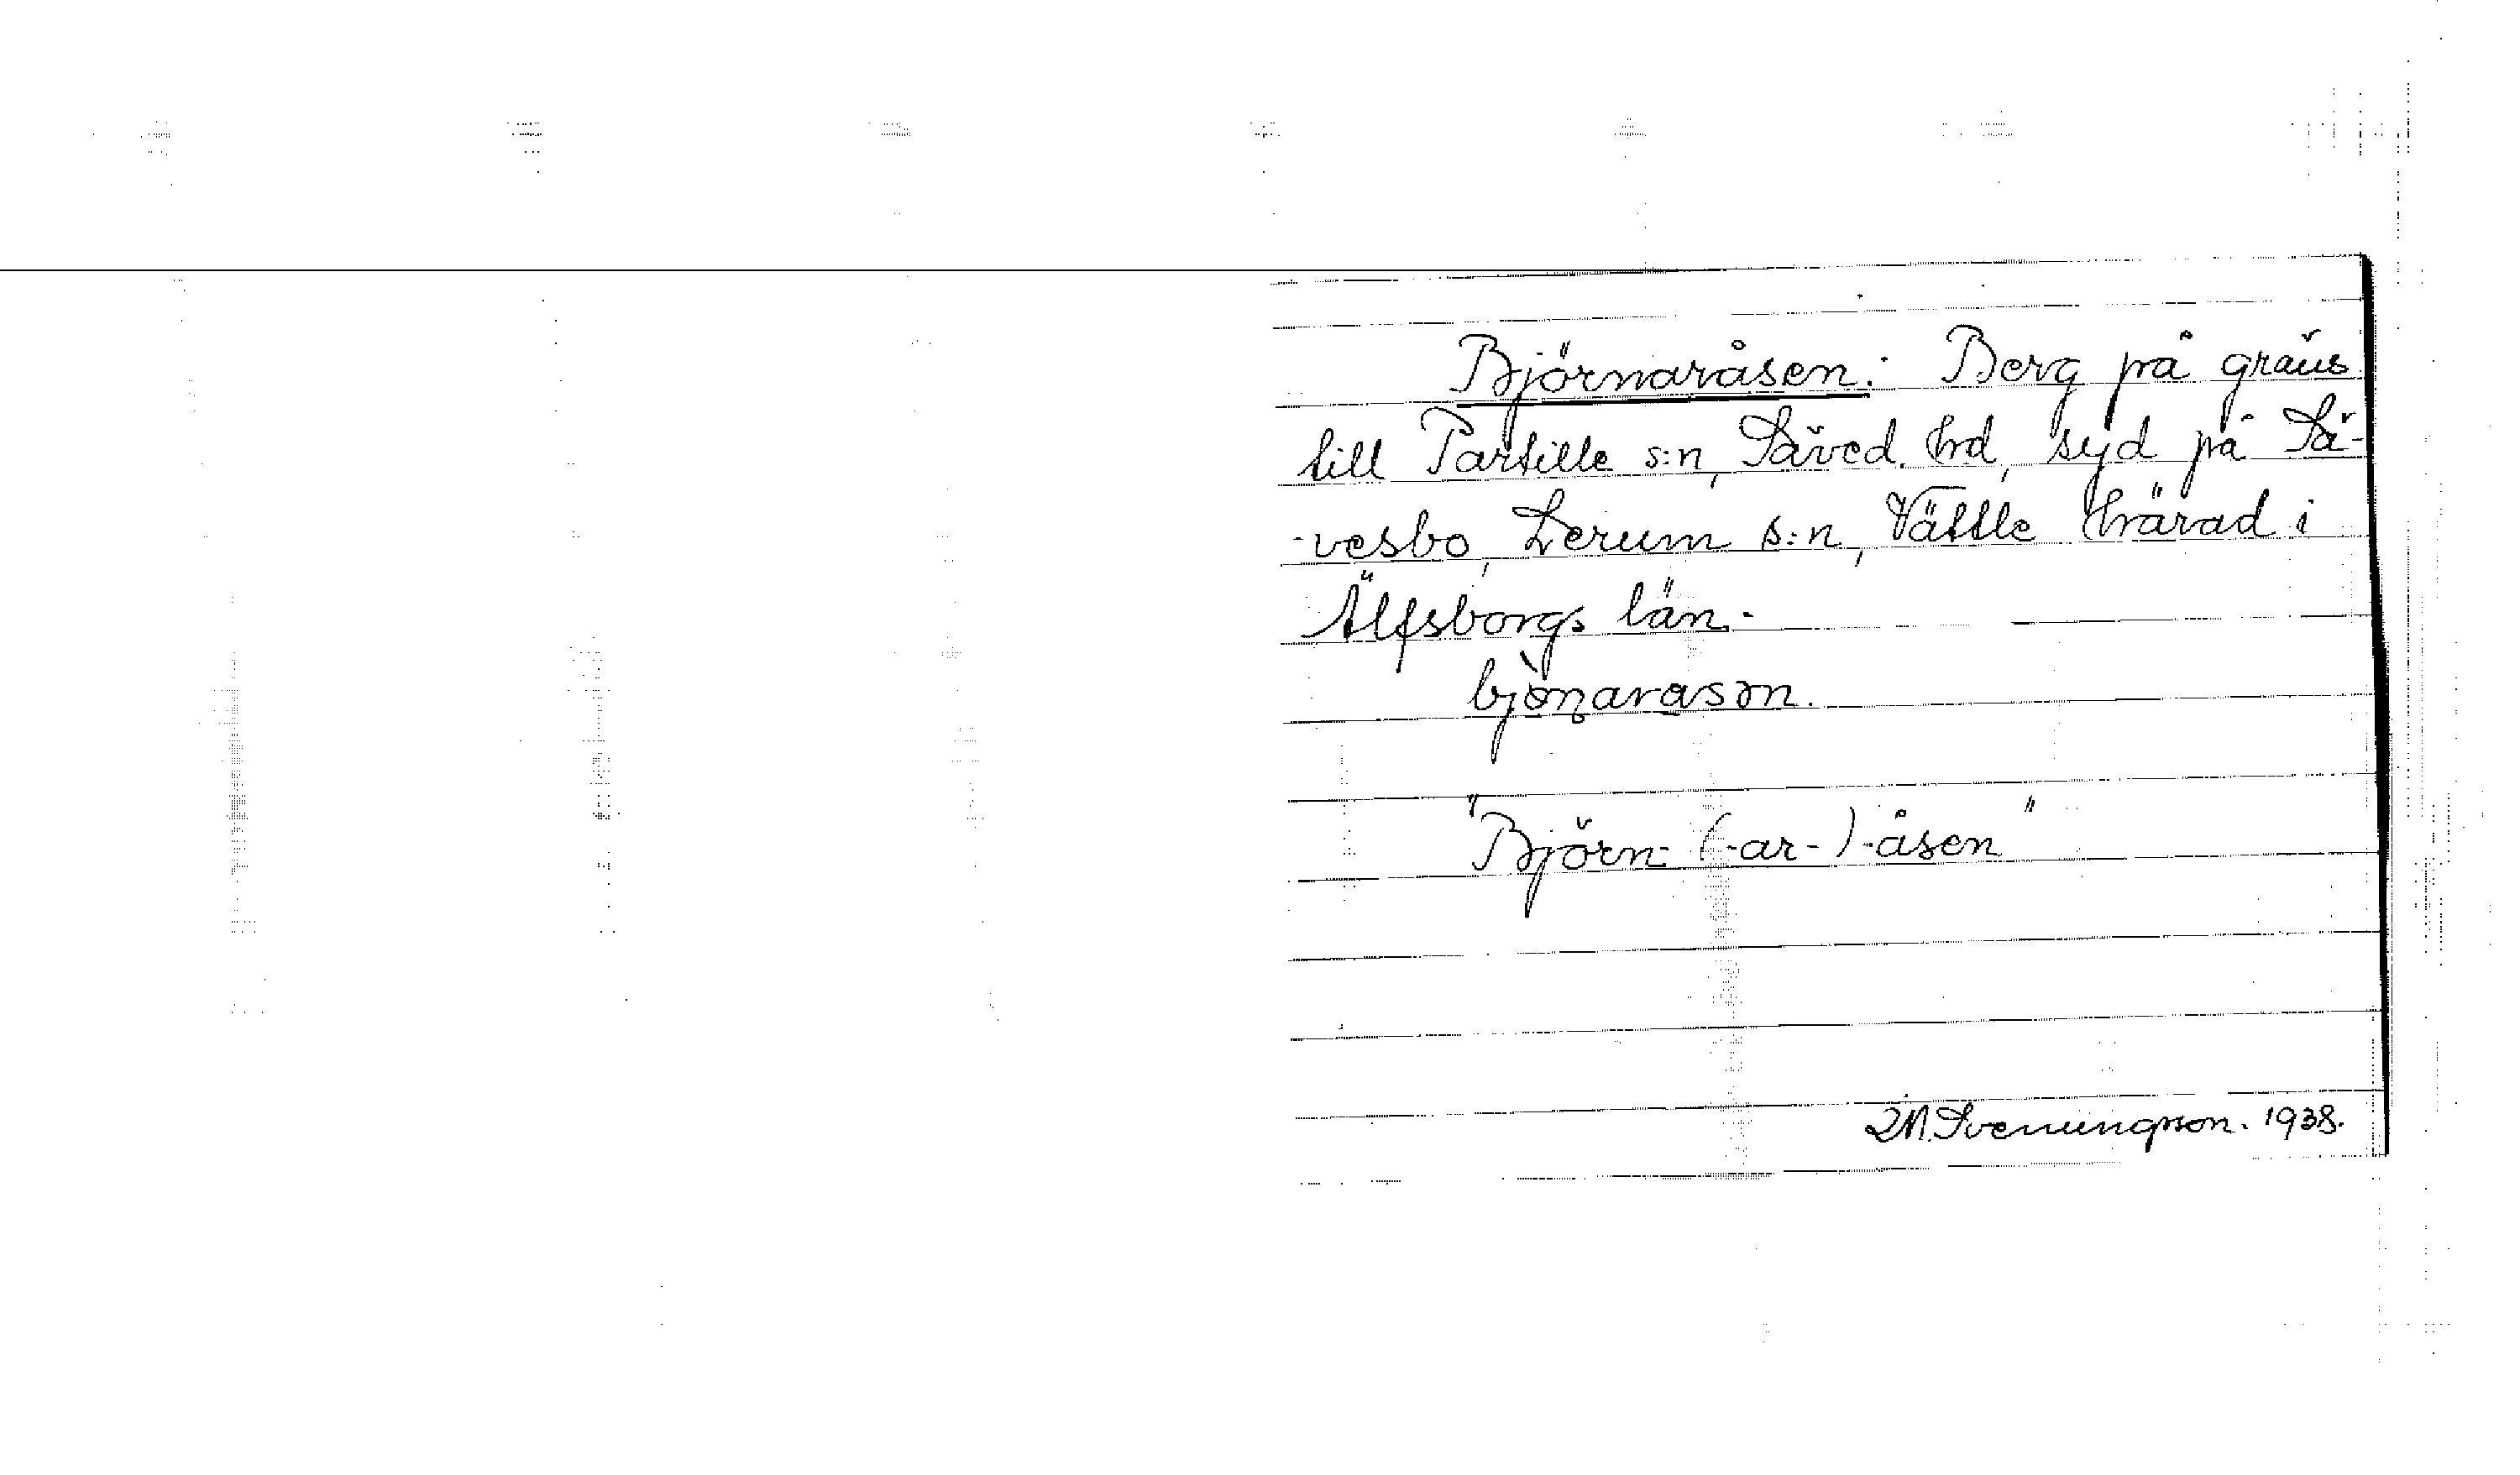 Björnaråsen: Berg på gräns
till Partille s:n, Säved. hrd, syd på Sä-
-vesbo, Lerum s:n, Vättle härad i
Älfsborgs län.
bjönarasən.
"Björn- (-ar-) -åsen"
M. Svenungson. 1938.